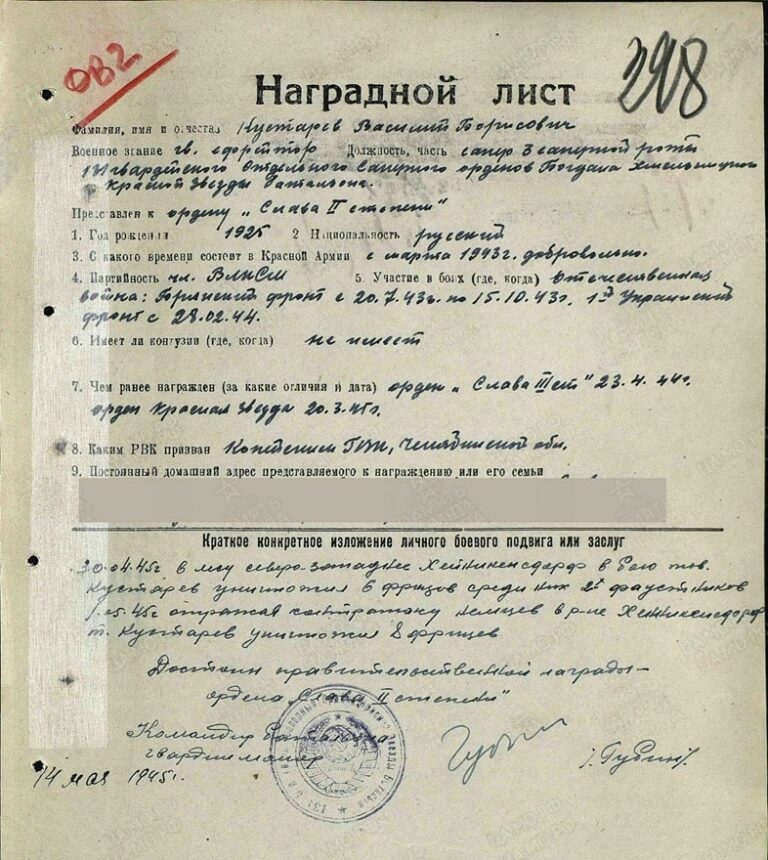 ОВ2
298
Наградной лист
Фамилия, имя и отчество Кустарев Василий Борисович
Военное звание гв. ефрейтор Должность, часть сапер 3 саперной роты
131 гвардейского Отдельного Саперного орденов Богдана Хмельницкого
и Красной Звезды батальона.
Представлен к ордену „Слава II степени"
1. Год рождения 1925 2 Национальность русский
3. С какого времени состоит в Красной Армии с марта 1943г. добровольно.
4. Партийность чл. ВЛКСМ 5. Участие в боях (где, когда) Отечественная
война: Брянский фронт с 20.7.43г. по 15.10.43г, 1й Украинский
фронт с 28.02.44.
6. Имеет ли контузии (где, когда) не имеет
7. Чем ранее награжден (за какие отличия и дата) орден „Слава III ст" 23.4.44г.
орден Красная Звезда 20.3.45г.
8. Каким РВК призван ГВК, Челябинской обл.
9. Постоянный домашний адрес представляемого к награждению или его семьи
Краткое конкретное изложение личного боевого подвига или заслуг
30.04.45г в лесу северо-западнее в бою тов.
Кустарев уничтожил 6 фрицев среди них 2х фаустников
1.05.45г отражая контратаку немцев в р-не
т. Кустарев уничтожил 8 фрицев
Достоин правительственной награды
ордена „Слава II степени"
Командир батальона
гвардии майор Губин /Губин/.
14 мая 1945г.